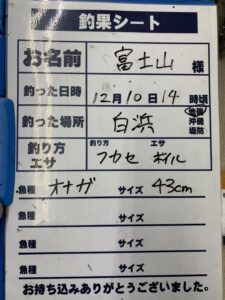 釣果シート
お名前 富士山 様
釣った日時 12月10日14時頃
釣った場所 白浜 地磯 沖磯 堤防
釣り方 エサ 釣り方 フカセ エサ ボイル
魚種 オナガ サイズ 43cm
魚種 サイズ
魚種 サイズ
魚種 サイズ
お持ち込みありがとうございました。